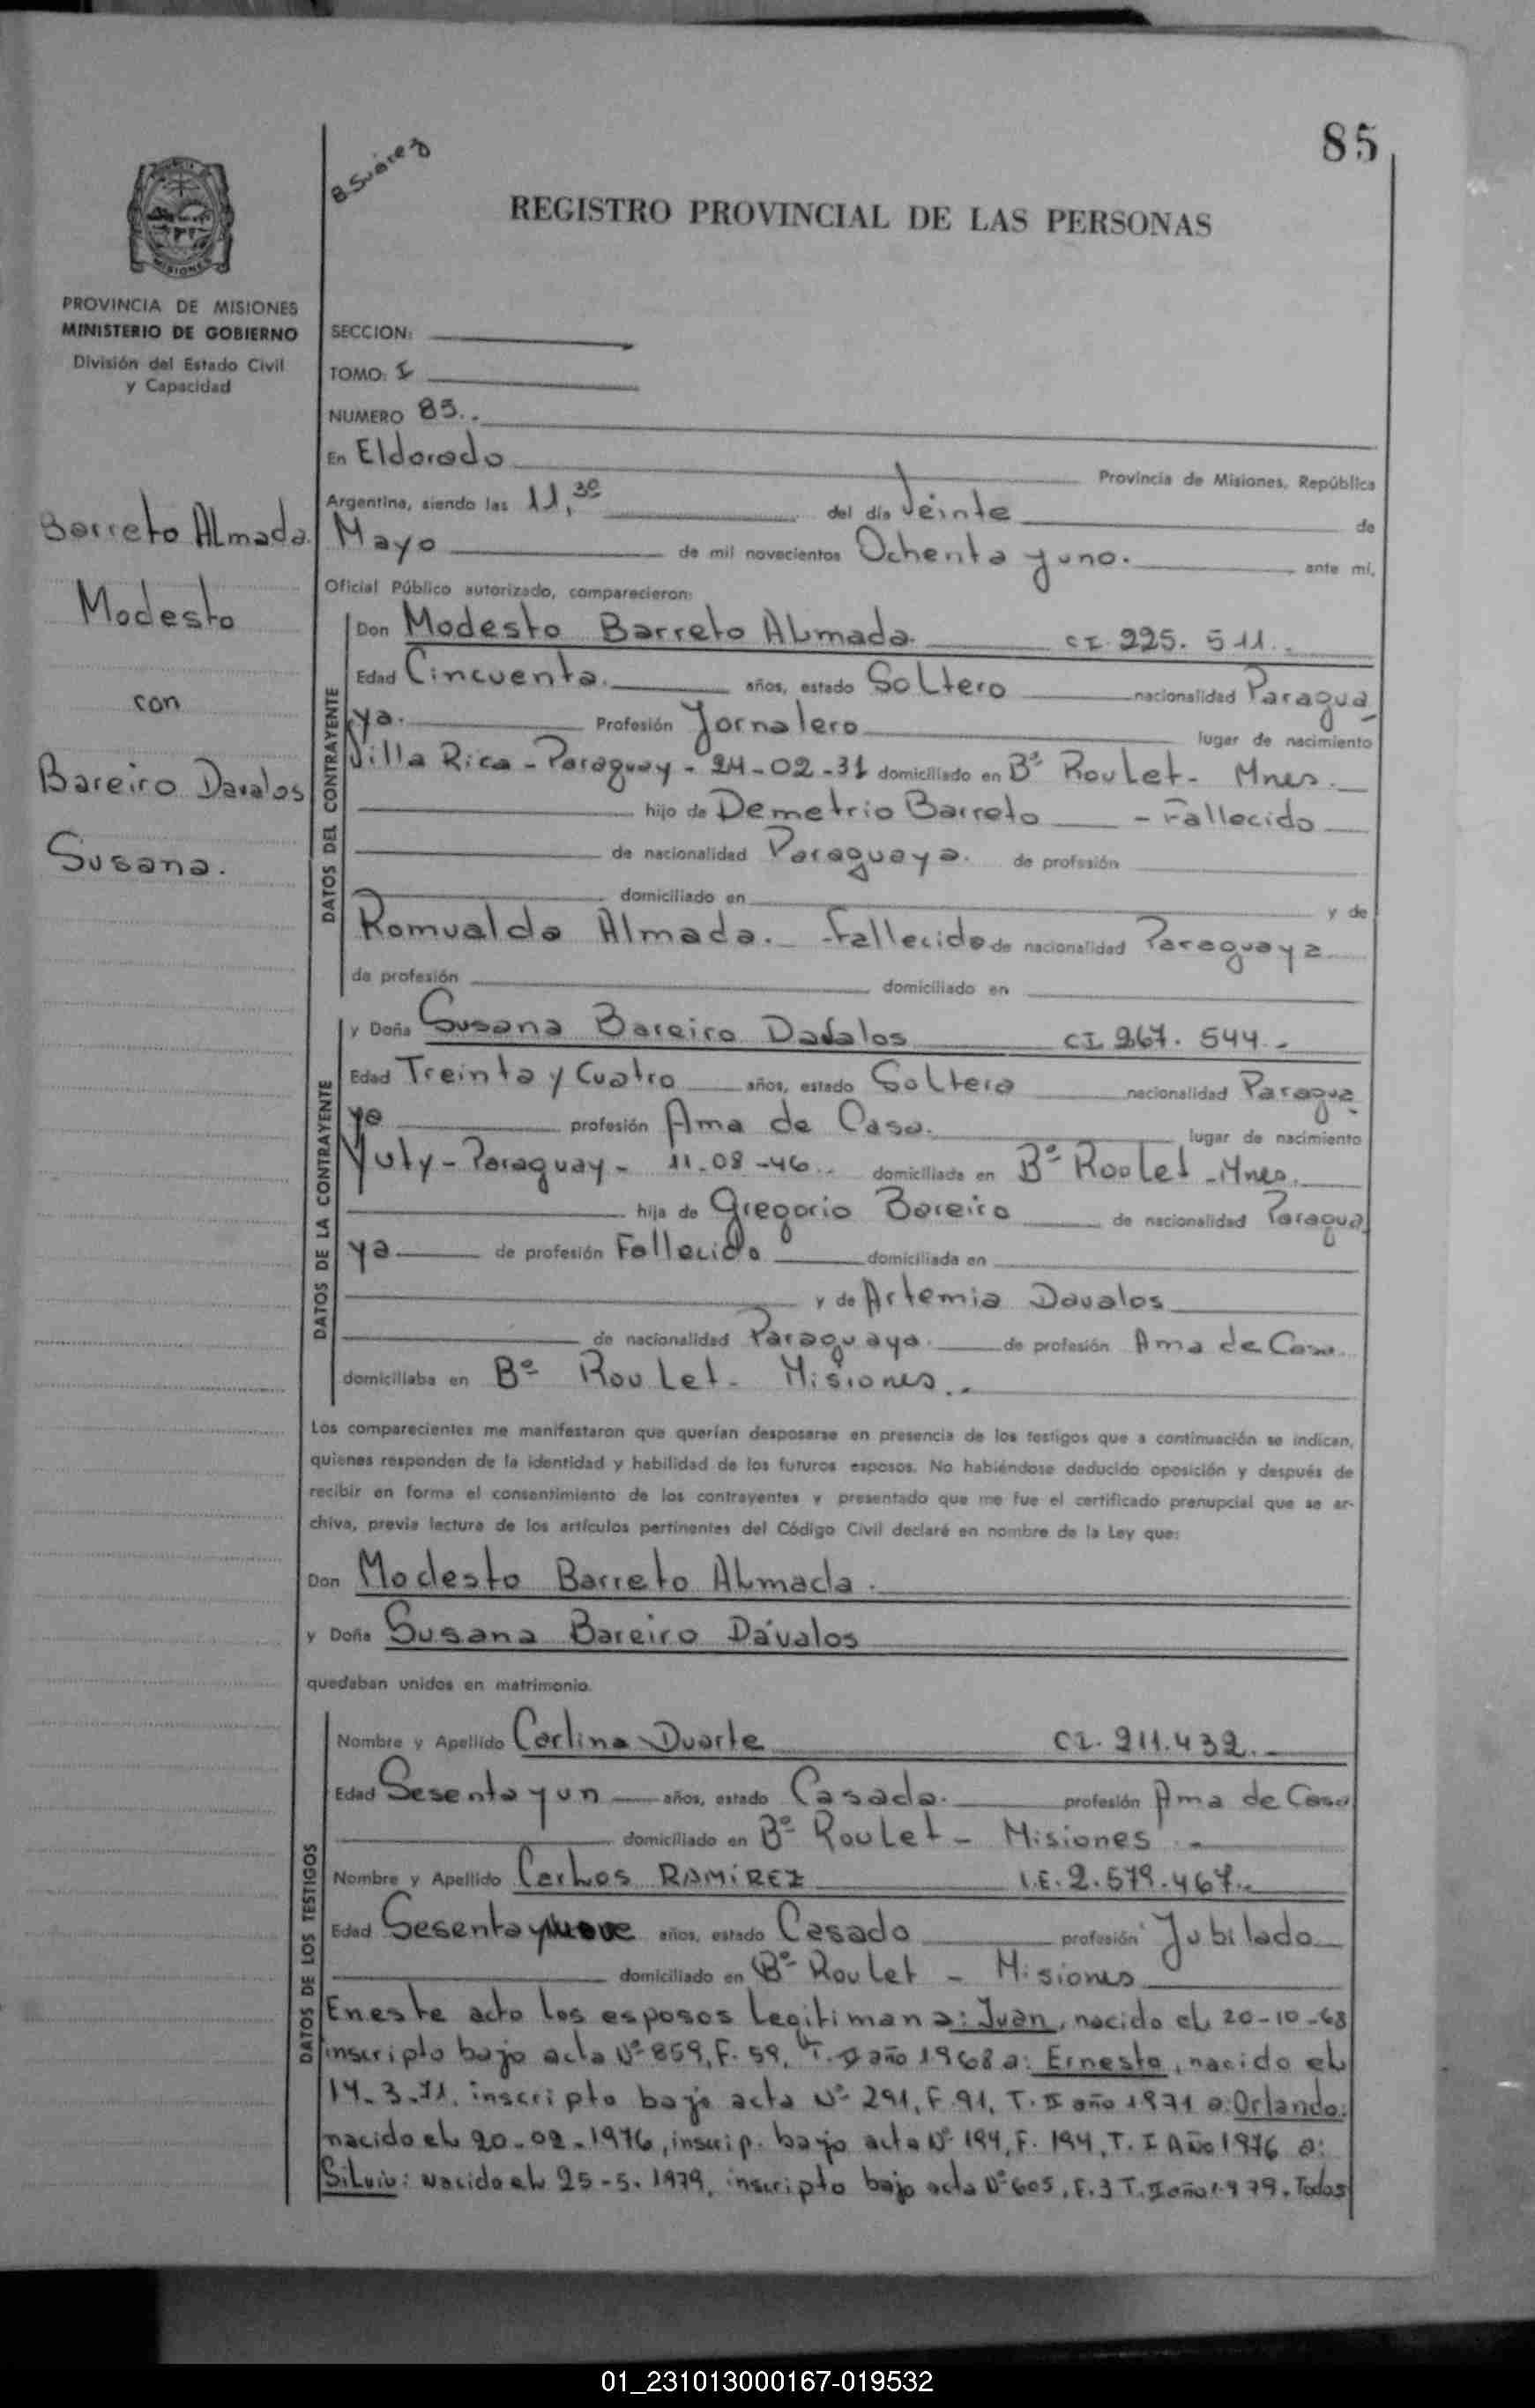 85
B Suárez
REGISTRO PROVINCIAL DE LAS PERSONAS
MISIONES
PROVINCIA DE MISIONES
MINISTERIO DE GOBIERNO
División del Estado Civil
y Capacidad
Barreto Almada.
Modesto
con
Bareiro Davalos
Susana.
SECCION:
TOMO: I
NUMERO 85..
En Eldorado Provincia de Misiones, República
Argentina, siendo las 11,30 del día Veinte de
Mayo de mil novecientos Ochenta y uno. ante mí,
Oficial Público autorizado, comparecieron:
DATOS DEL CONTRAYENTE
Don Modesto Barreto Almada. CI. 225.511..
Edad Cincuenta. años, estado Soltero nacionalidad Paragua
ya. Profesión Jornalero lugar de nacimiento
Villa Rica - Paraguay - 24-02-31 domiciliado en Bº Roulet - Mnes.
hijo de Demetrio Barreto - Fallecido
de nacionalidad Paraguaya. de profesión
domiciliado en y de
Romualda Almada. - Fallecida de nacionalidad Paraguaya
de profesión domiciliado en
DATOS DE LA CONTRAYENTE
y Doña Susana Bareiro Davalos CI 267.544.-
Edad Treinta y Cuatro años, estado Soltera nacionalidad Paragua
ya profesión Ama de Casa. lugar de nacimiento
Yuty - Paraguay - 11-08-46.. domiciliada en Bº Roulet - Mnes.
hija de Gregorio Bareiro de nacionalidad Paragua
ya de profesión Fallecido domiciliada en
y de Artemia Davalos
de nacionalidad Paraguaya. de profesión Ama de Casa.
domiciliaba en Bº Roulet - Misiones..
Los comparecientes me manifestaron que querían desposarse en presencia de los testigos que a continuación se indican,
quienes responden de la identidad y habilidad de los futuros esposos. No habiéndose deducido oposición y después de
recibir en forma el consentimiento de los contrayentes y presentado que me fue el certificado prenupcial que se ar-
chiva, previa lectura de los artículos pertinentes del Código Civil declaré en nombre de la Ley que:
Don Modesto Barreto Almada.
y Doña Susana Bareiro Dávalos
quedaban unidos en matrimonio.
DATOS DE LOS TESTIGOS
Nombre y Apellido Carlina Duarte CI. 211.432..
Edad Sesenta y un años, estado Casada. profesión Ama de Casa
domiciliado en Bº Roulet - Misiones .-
Nombre y Apellido Carlos RAMíREZ I.E. 2.579.467..
Edad Sesenta y nueve años, estado Casado profesión Jubilado
domiciliado en Bº Roulet - Misiones
En este acto los esposos legitiman a: Juan, nacido el 20-10-68
inscripto bajo acta Nº 859, F. 59, T. año 1968 a: Ernesto, nacido el
14-3-71, inscripto bajo acta Nº 291, F. 91, T. II año 1971 a: Orlando:
nacido el 20-02-1976, inscrip. bajo acta Nº 194, F. 194, T. I Año 1976 a:
Silvio: Nacido el 25-5-1979, inscripto bajo acta Nº 605, F. 3 T. II año 1979. Todos
01_231013000167-019532